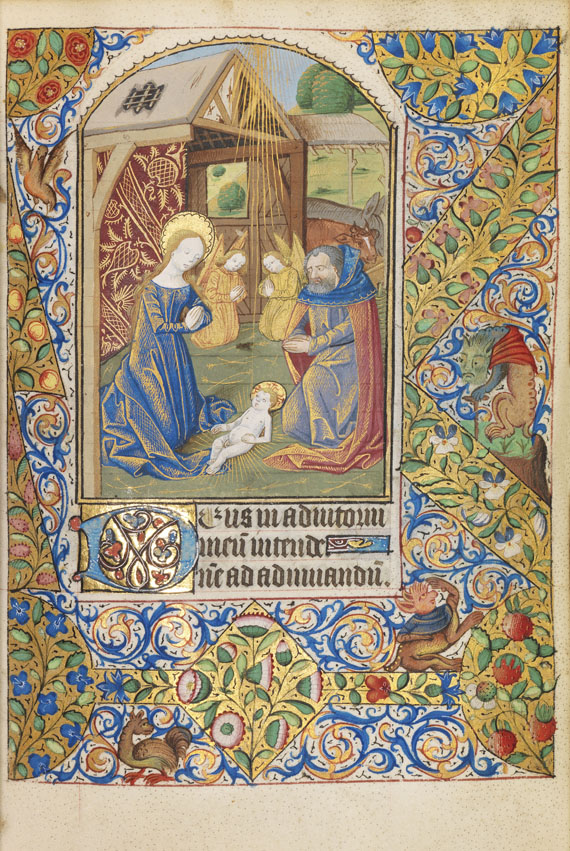 Deus in adiutoriu
meu intende
Dne ad adiuuandu.